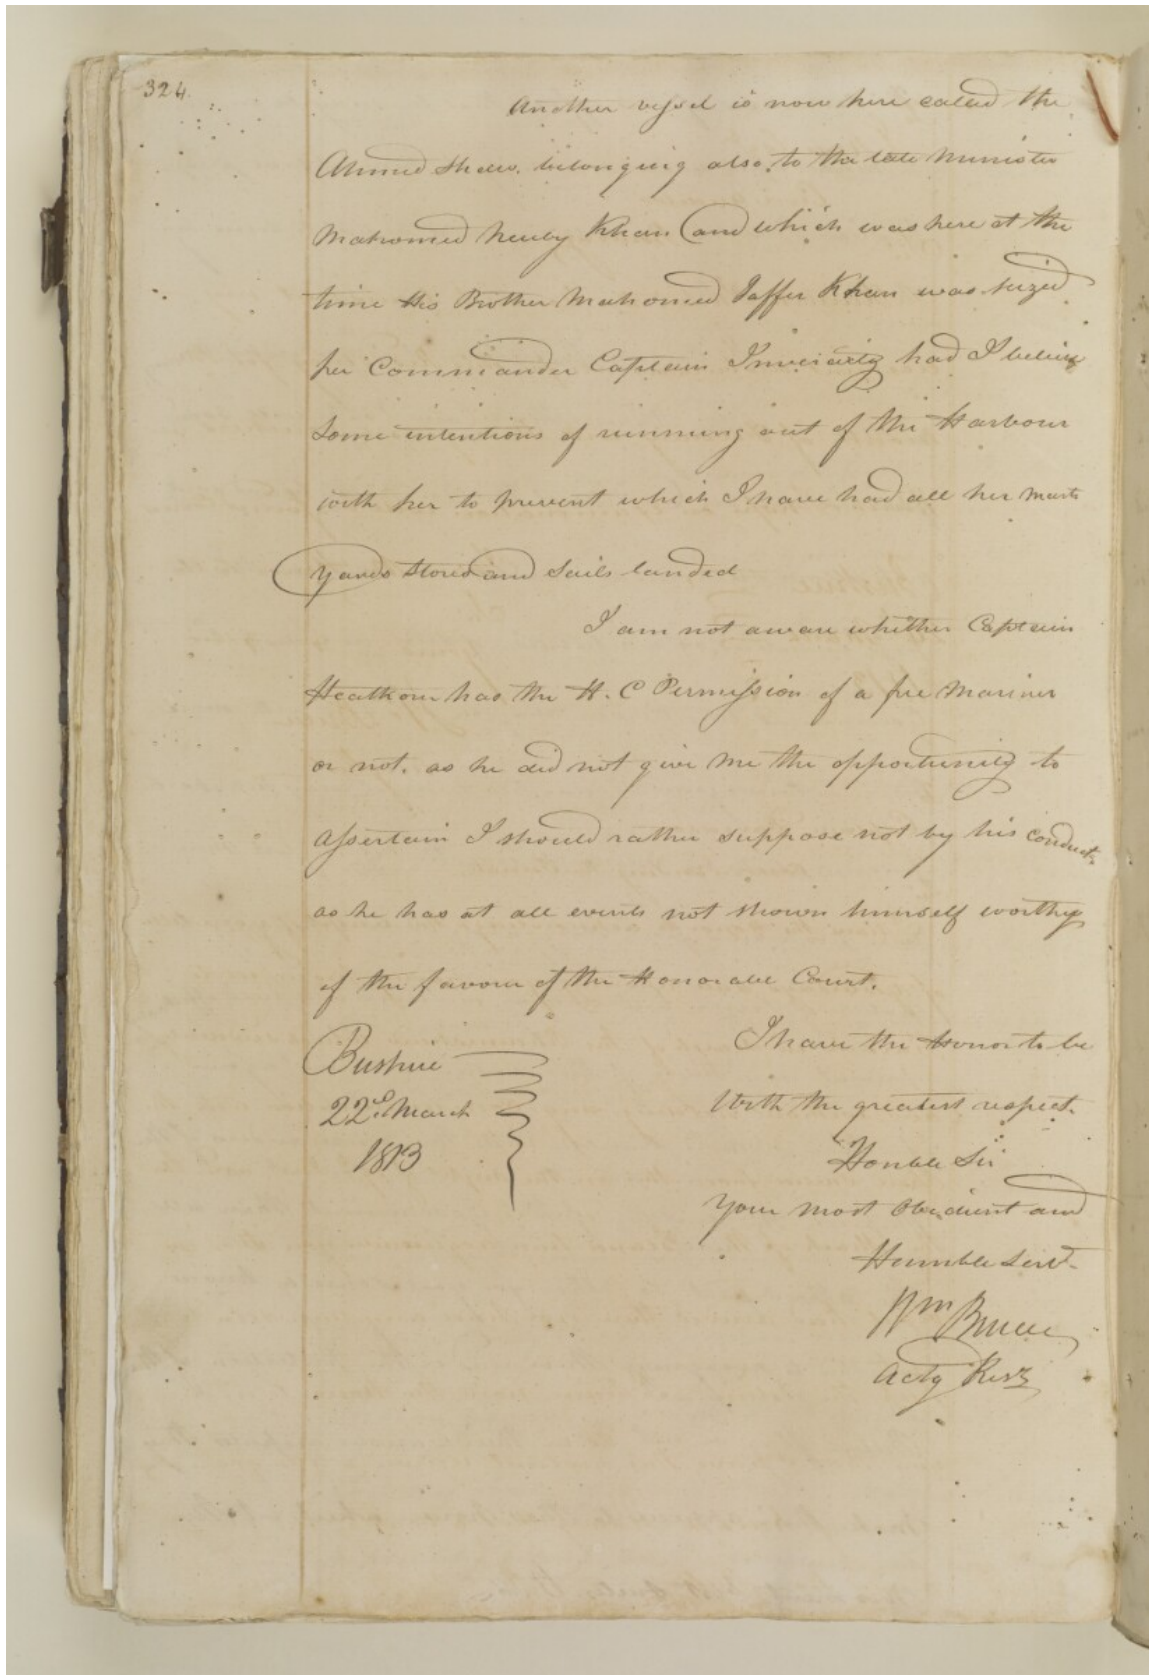 324.
Another vessel is now here called the
Ahmed Shaw. belonging also, to the late Minister
Mahomed Neuby Khan (and which was here at the
time His Brother Mahomed Jaffer Khan was seized
her Commander Captain had I believe
some intentions of running out of the Harbour
with her to prevent which I have had all her Masts
Yards Stores and Sails landed
I am not aware whether Captain
Heathorn has the H. C Permission of a free Mariner
or not. as he did not give me the opportunity to
assertain I should rather suppose not by his conduct.
as he has at all events not shown himself worthy
of the favour of the Honorable Court.
I have the Honor to be
With the greatest respect.
Honble Sir
Your most Obedient and
Humble Servt.
Wm Bruce
Actg ResT
Bushire
22d. March
1813